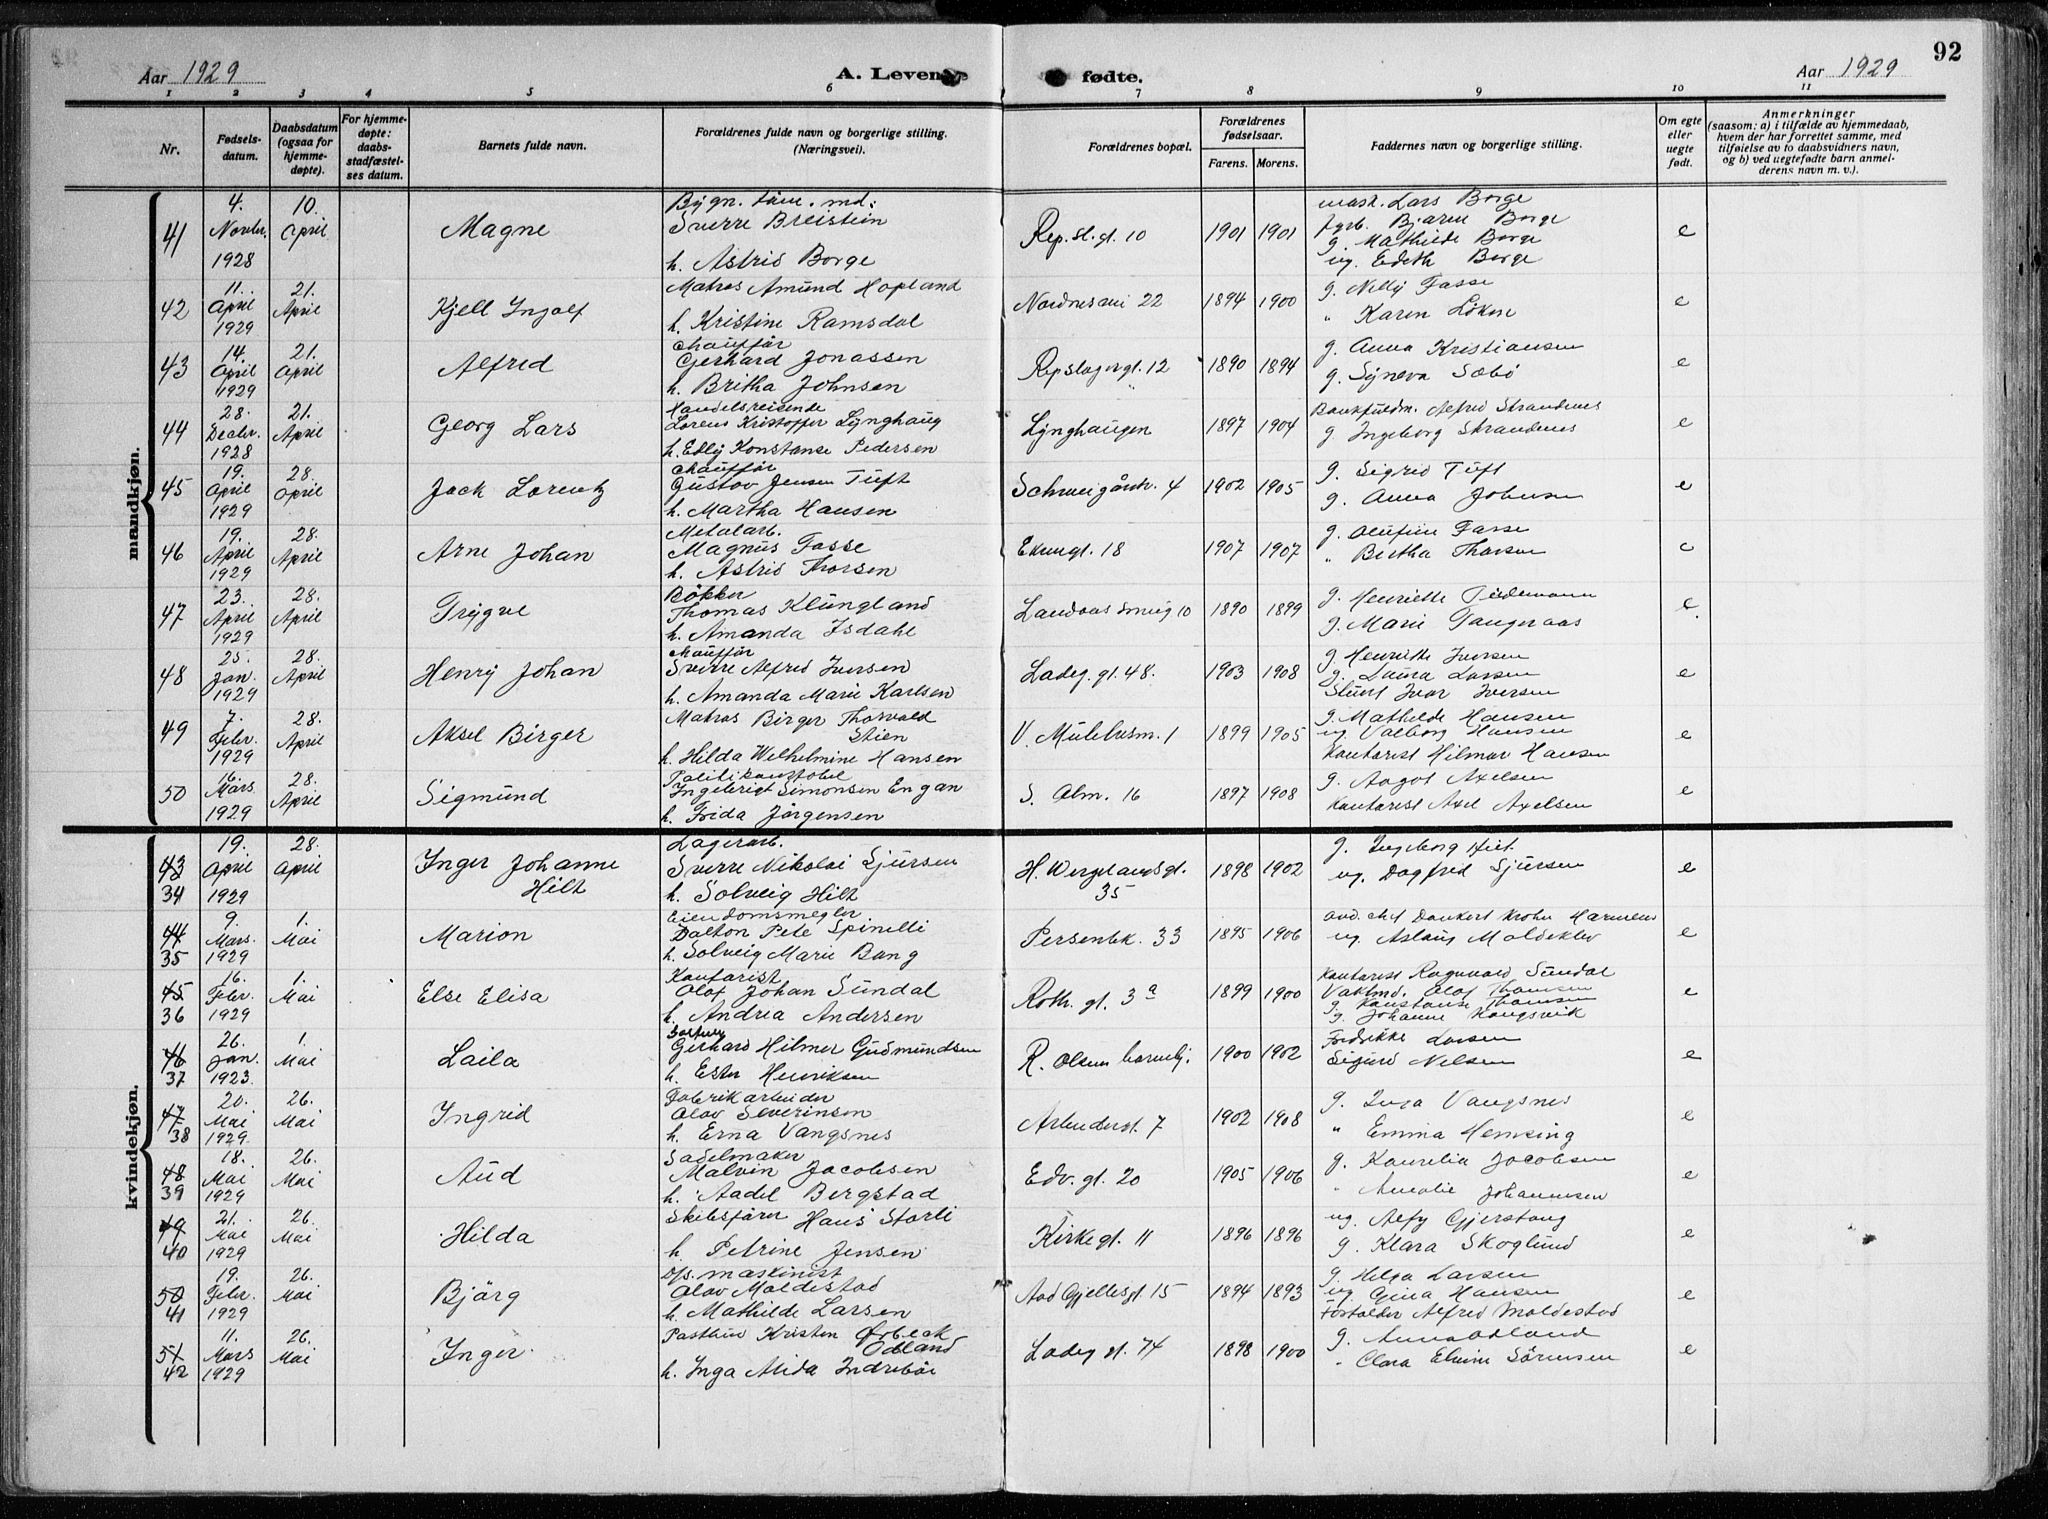 92
Aar 1929
A. Levende fødte.
Aar 1929
1 2 3 4 5 6 7 8 9 10 11
Nr.
Fødsels-
datum.
Daabsdatum
(ogsaa for
hjemme-
døpte).
For hjemme-
døpte:
daabs-
stadfæstel-
ses datum.
Barnets fulde navn.
Forældrenes fulde navn og borgerlige stilling.
(Næringsvei).
Forældrenes bopæl.
Forældrenes
fødselsaar.
Farens. Morens.
Faddernes navn og borgerlige stilling.
Om egte
eller
uegte
født.
Anmerkninger
(saasom: a) i tilfælde av hjemmedaab,
hvem der har forrettet samme, med
tilføielse av to daabsvidners navn,
og b) ved uegtefødte barn anmel-
derens navn m. v.).
mandkjøn.
41 4. Novbr. 1928 10. April Magne
Sverre Breistein
h. Astrid Borge
Rep.sl.gt. 10 1901 1901
mask. Lars Borge
fyrb. Bjarne Borge
g. Mathilde Borge
ug. Edith Borge
e
42 11. April 1929 21. April Kjell Ingolf
Matros Amund Hopland
h. Kristine Ramsdal
Nordnesvei 22 1894 1900
g. Nelly Fasse
" Karen Løken
e
43 14. April 1929 21. April Alfred
Chauffør
Gerhard Jonassen
h. Britha Johnsen
Repslagergt. 12 1890 1894
g. Anna Kristiansen
g. Syneva Sæbö
e
44 28. Decbr. 1928 21. April Georg Lars
Handelsreisende
Lorens Kristoffer Lynghaug
h. Edly Konstanse Pedersen
Lynghaugen 1897 1904
Bankfuldm. Alfred Strandenes
g Ingeborg Strandenes
e
45 19. April 1929 28. April Jack Lorentz
Chauffør
Gustav Jensen Tuft
h. Martha Hansen
Schweigårdv. 4 1902 1905
g. Sigrid Tuft
g. Anna Johnsen
e
46 19. April 1929 28. April Arne Johan
Metalarb.
Magnus Fasse
h. Astrid Thorsen
Ekrengt. 18 1907 1907
g. Olufine Fasse
" Bertha Thorsen
e
47 23. April 1929 28. April Trygve
Bökker
Thomas Klungland
h. Amanda Isdahl
Landaassmug 10 1890 1899
g. Henriette Tiedemann
g. Marie Tangeraas
e
48 25. Jan. 1929 28. April Henry Johan
Chauffør
Sverre Alfred Iversen
h. Amanda Marie Karlsen
Ladeg. gt. 48. 1903 1908
g. Henriette Iversen
g. Laura Larsen
Stuert Ivar Iversen
e
49 7. Febr. 1929 28. April Aksel Birger
Matros Birger Thorvald
Stien
h. Hilda Wilhelmine Hansen
V. Mülehusm. 1 1899 1905
g. Mathilde Hansen
ug. Valborg Hansen
Kontorist Hilmar Hansen
e
50 16. Mars 1929 28. April Sigmund
Politikonstabel
Ingebrigt Simonsen Engan
h. Frida Jørgensen
S. Alm. 16 1897 1908
g. Aagot Axelsen
Kontorist Axel Axelsen
e
kvindekjøn.
43 34 19. April 1929 28. April Inger Johanne
Hilt
Lagerarb.
Sverre Nikolai Sjursen
h. Solveig Hilt
H. Wergelandsgt.
35 1898 1902
g. Ingeborg Hilt
ug. Dagfrid Sjursen
e
44 35 9. Mars. 1929 1. Mai Marion
Eiendomsmegler
Dalton Pete Spinelli
h. Solveig Marie Bang
Persenbk. 33 1895 1906
avd. chef Dankert Krohn Harmens
ug. Aslaug Moldeklev
e
45 36 16. Febr. 1929 1. Mai Else Elisa
Kontorist
Olaf Johan Sundal
h. Andrea Andersen
Roth. gt. 3a 1899 1900
Kontorist Ragnvald Sundal
Vaktmd. Olaf Thomsen
g. Konstanse Thomsen
g. Johanne Kongsvik
e
46 37 26. Jan. 1923. 1. Mai Laila
Gerhard Hilmer Gudmundsen
h. Ester Henriksen
R. Olsens barnehj. 1900 1902
Fredrikke Larsen
Sigurd Nilsen
e
47 38 20. Mai 1929. 26. Mai Ingrid
Fabrikarbeider
Olav Severinsen
h. Erna Vangsnes
Arbeidergt. 7 1902 1908
g. Inga Vangsnes
" Emma Hemsing
e
48 39 18. Mai 1929 26. Mai Aud
Sadelmaker
Malvin Jacobsen
h. Aadel Bergstad
Edv. gt. 20 1905 1906
g. Kanelia Jacobsen
" Amalie Johannesen
e
49 40 21. Mai 1929 26. Mai Hilda
Skibsfører Hans Storli
h. Petrine Jensen
Kirkegt. 11 1896 1896
ug. Alfy Gjerstang
g. Klara Skoglund
e
50 41 19. Febr. 1929 26. Mai Björg
ds. maskinist
Olav Moldestad
h. Mathilde Larsen
Aad Gjellesgt. 15 1894 1893
g. Helga Larsen
ug. Gina Hansen
Forvalder Alfred Moldestad
e
51 42 11. Mars 1929 26. Mai Inger
Postbud Kristen Ørbeck
Odland
h. Inga Alida Indreböe
Ladeg gt. 74 1898 1900
g. Anna Odland
" Clara Elvine Sörensen
e